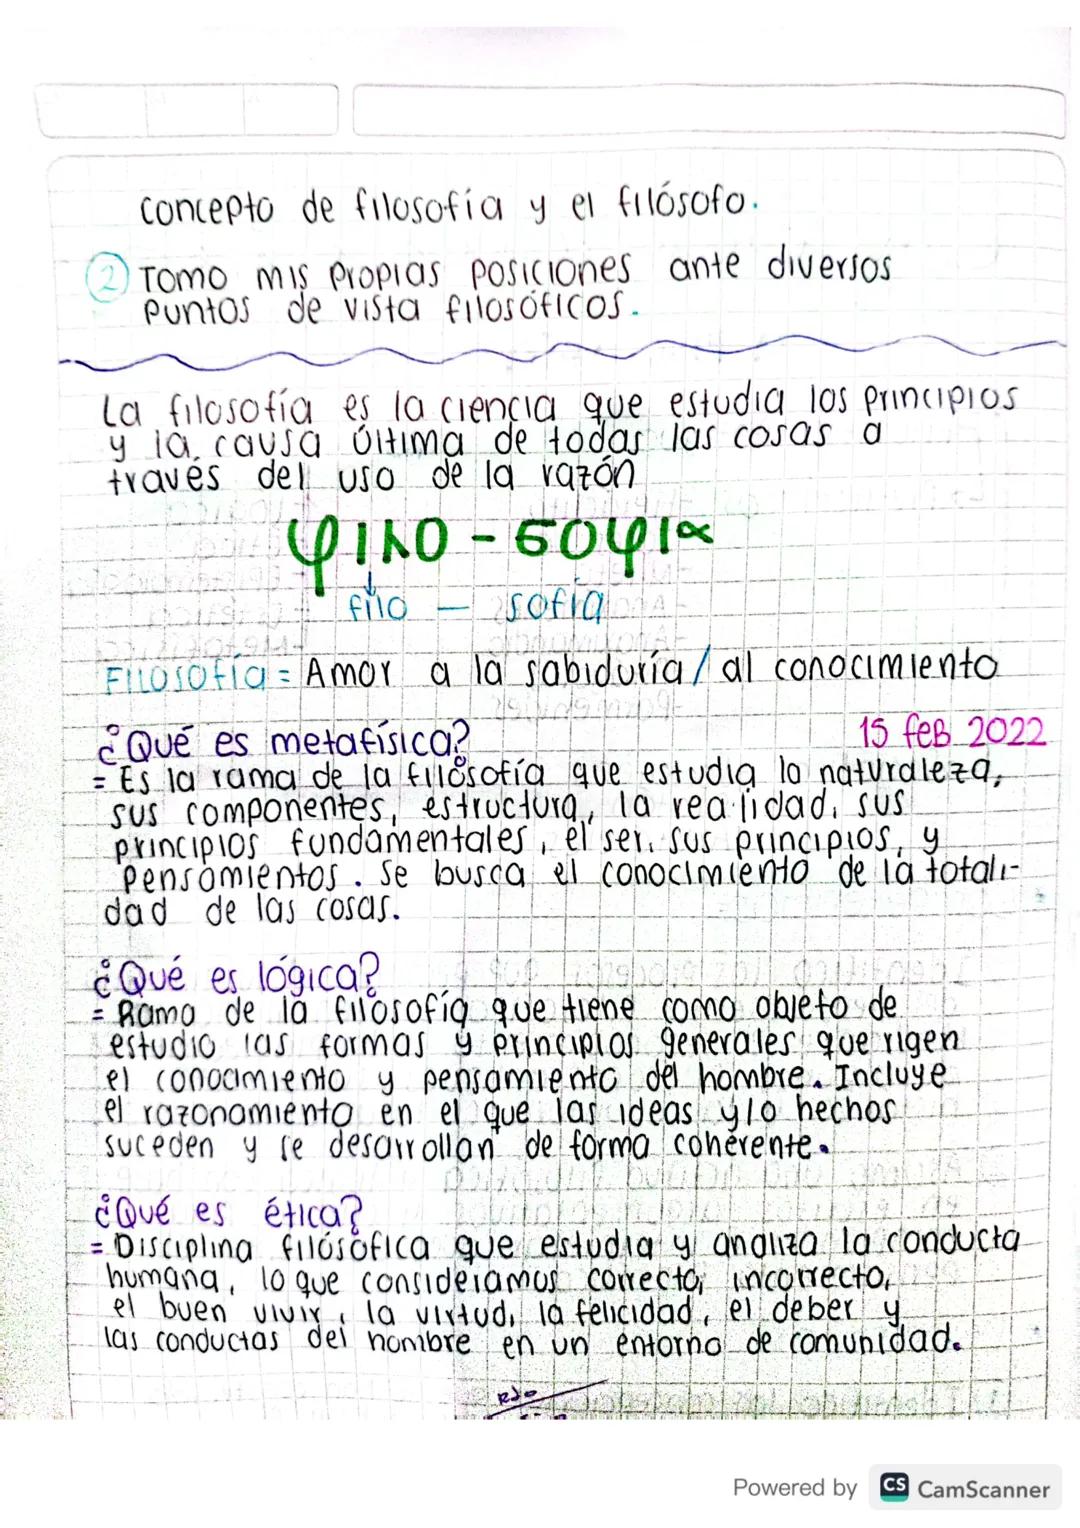 concepto de filosofía y el filósofo.
2 Tomo mis propias posiciones ante diversos
puntos de vista filosóficos.
La filosofía es la ciencia que estudia los principios
y la causa última de todas las cosas a
través del uso de la razón
φιλο - σοφια
filo — sofía
Filosofía = Amor a la sabiduría / al conocimiento
¿Qué es metafísica? 15 feb 2022
= Es la rama de la filosofía que estudia la naturaleza,
sus componentes, estructura, la realidad, sus
principios fundamentales, el ser, sus principios, y
pensamientos. Se busca el conocimiento de la totali-
dad de las cosas.
¿Qué es lógica?
= Rama de la filosofía que tiene como objeto de
estudio las formas y principios generales que rigen
el conocimiento y pensamiento del hombre. Incluye
el razonamiento en el que las ideas y/o hechos
suceden y se desarrollan de forma coherente.
¿Qué es ética?
= Disciplina filósofica que estudia y analiza la conducta
humana, lo que consideramos correcto, incorrecto,
el buen vivir, la virtud, la felicidad, el deber y
las conductas del hombre en un entorno de comunidad.
Powered by CS CamScanner